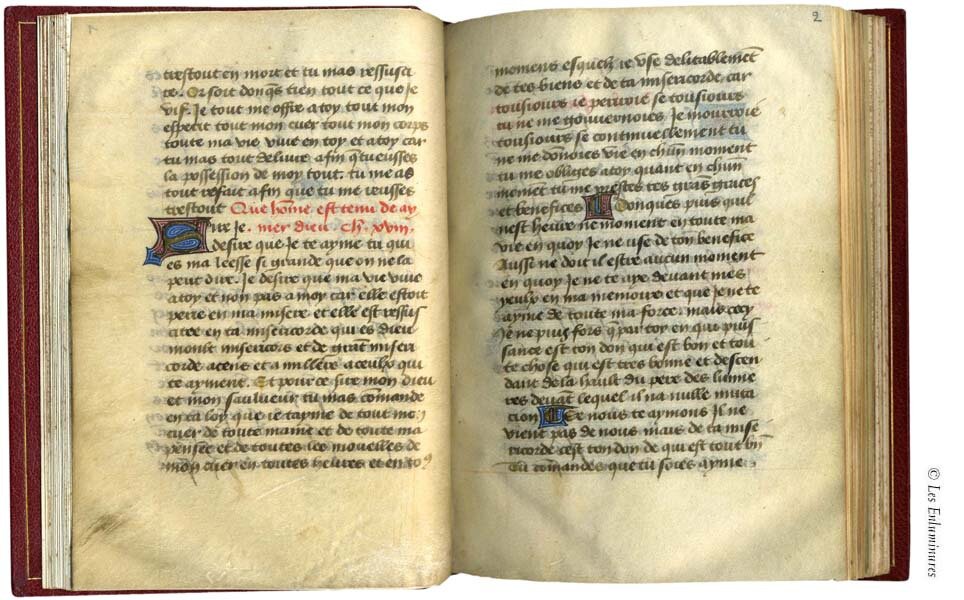 trestout en mort et tu mas ressusci
te. Or soit donqs tien tout ce que je
vif. Je tout me offre a toy tout mon
esperit tout mon cuer tout mon corps
toute ma vie vive en toy et a toy car
tu mas tout delivre afin q tu eusses
la possession de moy tout. tu me as
tout refait afin que tu me reusses
trestout Que home est tenu de ay
Sire je. mer dieu. Ch. xviii.
desire que je te ayme tu qui
es ma leesse si grande que on ne la
peut dire. Je desire que ma vie vive
a toy et non pas a moy car elle estoit
perie en ma misere et elle est ressus
citee en ta misericorde qui es dieu
moult misericors et de grant miseri
corde a cens et a milliers a ceulx qui
te ayment. Et pour ce sire mon dieu
et mon sauveur tu mas comande
en ta loy que je tayme de tout mon
cuer de toute mame et de toute ma
pensee et de toutes les mouelles de
mon cuer en toutes heures et en to9
2
momens esquelz je use delitablement
de tes biens et de ta misericorde, car
tousiours je periroie se tousiours
tu ne me gouvernoies Je mourroie
tousiours se continuellement tu
ne me donoies vie en chun moment
tu me obliges a toy quant en chun
moment tu me prestes tes grans graces
et benefices Donques puis quil
nest heure ne moment en toute ma
vie en quoy je ne use de ton benefice
Aussi ne doit il estre aucun moment
en quoy je ne te aye devant mes
yeulx en ma memoire et que je ne te
ayme de toute ma force. mais cecy
je ne puis fors q par toy en qui puis
sance est ton don qui est bon et tou
te chose qui est tres bonne et descen
dant de la hault du pere des lumie
res devant lequel il na nulle muta
cion Ce nous te aymons Il ne
vient pas de nous mais de ta mise
ricorde cest ton don de qui est tout bn
Tu comandes que tu soies ayme
© Les Enluminures